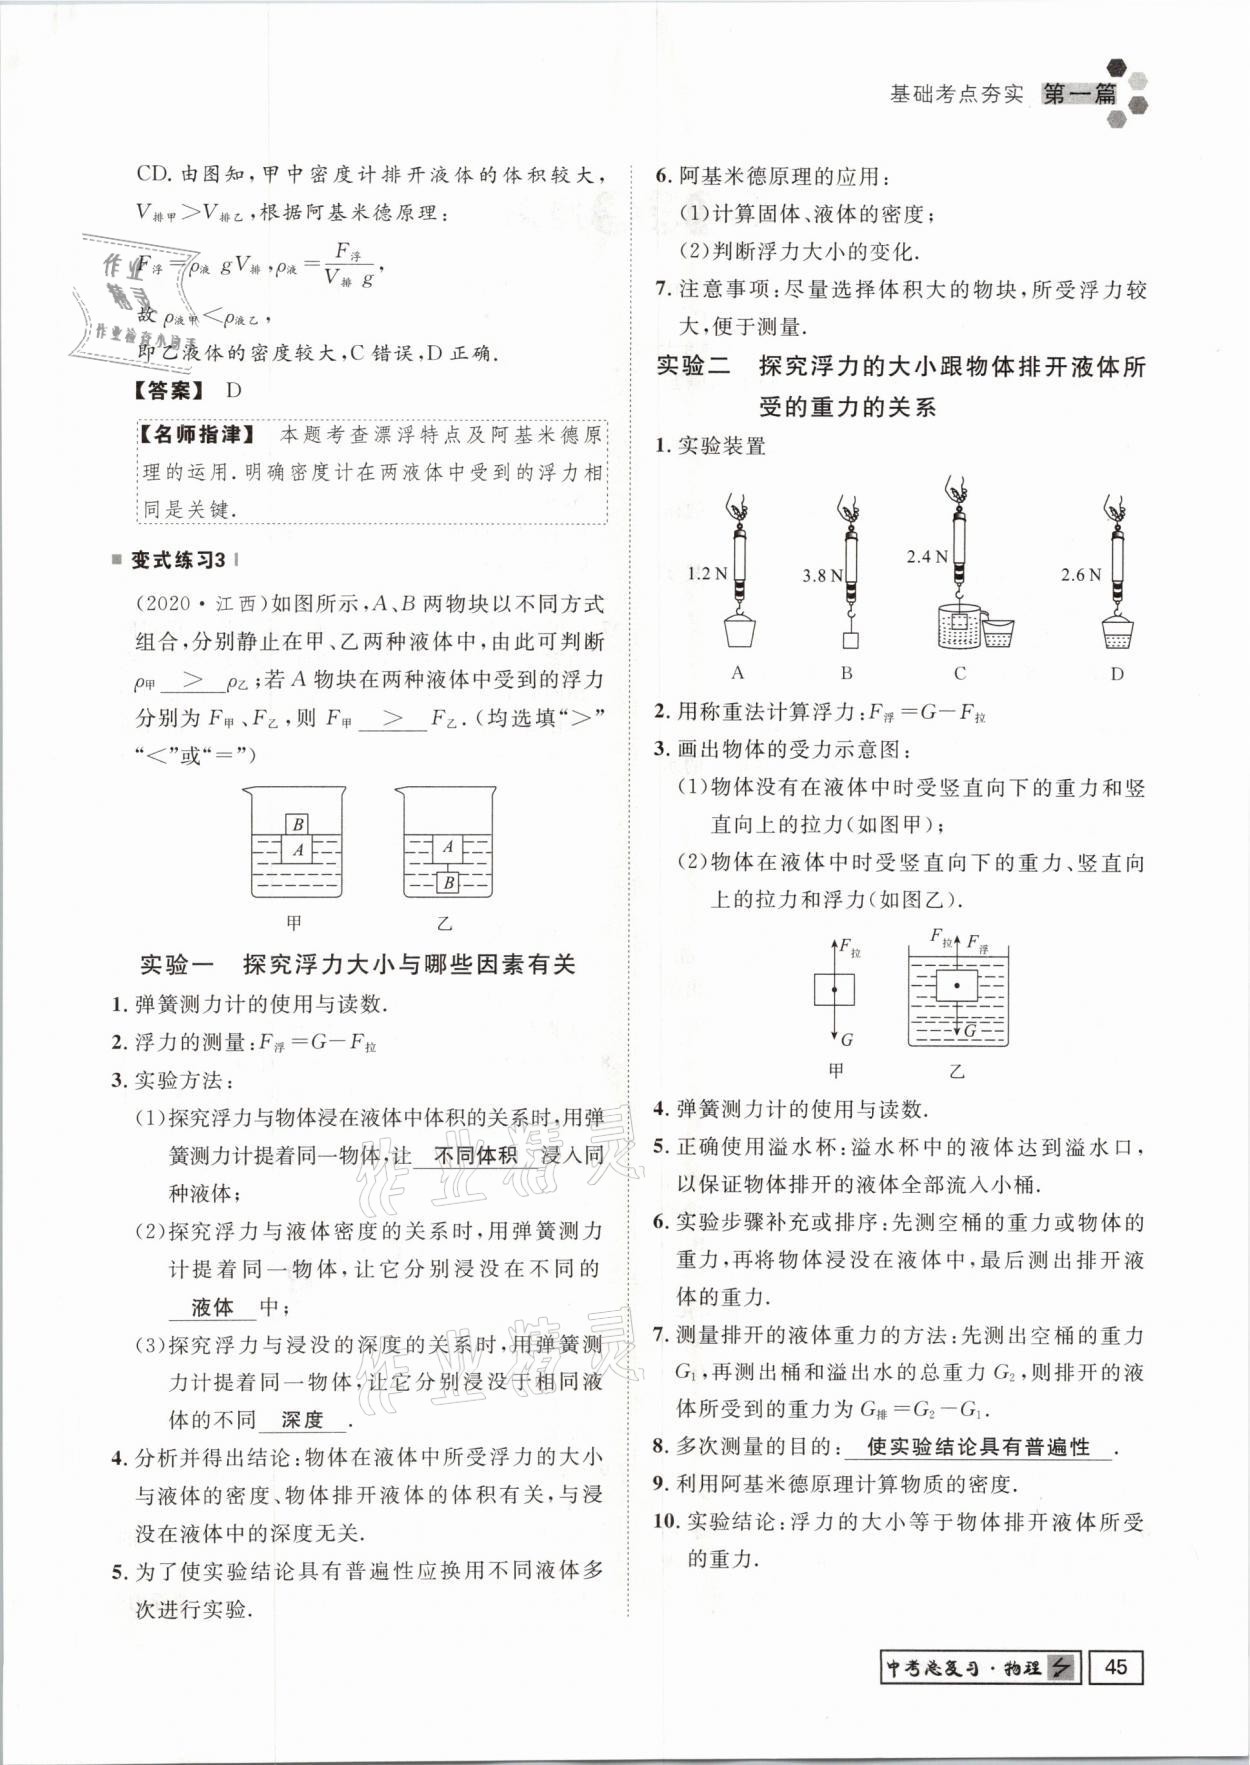 基础考点夯实 第一篇
CD.由图知,甲中密度计排开液体的体积较大,
V排甲>V排乙,根据阿基米德原理:
F浮=ρ液 gV排,ρ液=F浮/(V排 g),
故 ρ液甲<ρ液乙,
即乙液体的密度较大,C错误,D正确.
【答案】 D
【名师指津】 本题考查漂浮特点及阿基米德原
理的运用.明确密度计在两液体中受到的浮力相
同是关键.
变式练习3
(2020·江西)如图所示,A、B两物块以不同方式
组合,分别静止在甲、乙两种液体中,由此可判断
ρ甲 > ρ乙;若A物块在两种液体中受到的浮力
分别为F甲、F乙,则F甲 > F乙.(均选填“>”
“<”或“=”)
B
A
A
B
甲 乙
实验一 探究浮力大小与哪些因素有关
1. 弹簧测力计的使用与读数.
2. 浮力的测量:F浮=G-F拉
3. 实验方法:
(1)探究浮力与物体浸在液体中体积的关系时,用弹
簧测力计提着同一物体,让 不同体积 浸入同
种液体;
(2)探究浮力与液体密度的关系时,用弹簧测力
计提着同一物体,让它分别浸没在不同的
液体 中;
(3)探究浮力与浸没的深度的关系时,用弹簧测
力计提着同一物体,让它分别浸没于相同液
体的不同 深度 .
4. 分析并得出结论:物体在液体中所受浮力的大小
与液体的密度、物体排开液体的体积有关,与浸
没在液体中的深度无关.
5. 为了使实验结论具有普遍性应换用不同液体多
次进行实验.
6. 阿基米德原理的应用:
(1)计算固体、液体的密度;
(2)判断浮力大小的变化.
7. 注意事项:尽量选择体积大的物块,所受浮力较
大,便于测量.
实验二 探究浮力的大小跟物体排开液体所
受的重力的关系
1. 实验装置
1.2 N 3.8 N 2.4 N 2.6 N
A B C D
2. 用称重法计算浮力:F浮=G-F拉
3. 画出物体的受力示意图:
(1)物体没有在液体中时受竖直向下的重力和竖
直向上的拉力(如图甲);
(2)物体在液体中时受竖直向下的重力、竖直向
上的拉力和浮力(如图乙).
F拉 F拉 F浮
G G
甲 乙
4. 弹簧测力计的使用与读数.
5. 正确使用溢水杯:溢水杯中的液体达到溢水口,
以保证物体排开的液体全部流入小桶.
6. 实验步骤补充或排序:先测空桶的重力或物体的
重力,再将物体浸没在液体中,最后测出排开液
体的重力.
7. 测量排开的液体重力的方法:先测出空桶的重力
G1,再测出桶和溢出水的总重力G2,则排开的液
体所受到的重力为G排=G2-G1.
8. 多次测量的目的: 使实验结论具有普遍性 .
9. 利用阿基米德原理计算物质的密度.
10. 实验结论:浮力的大小等于物体排开液体所受
的重力.
中考总复习·物理 45
作业
精灵
作业检查小助手
作业精灵
作业精灵